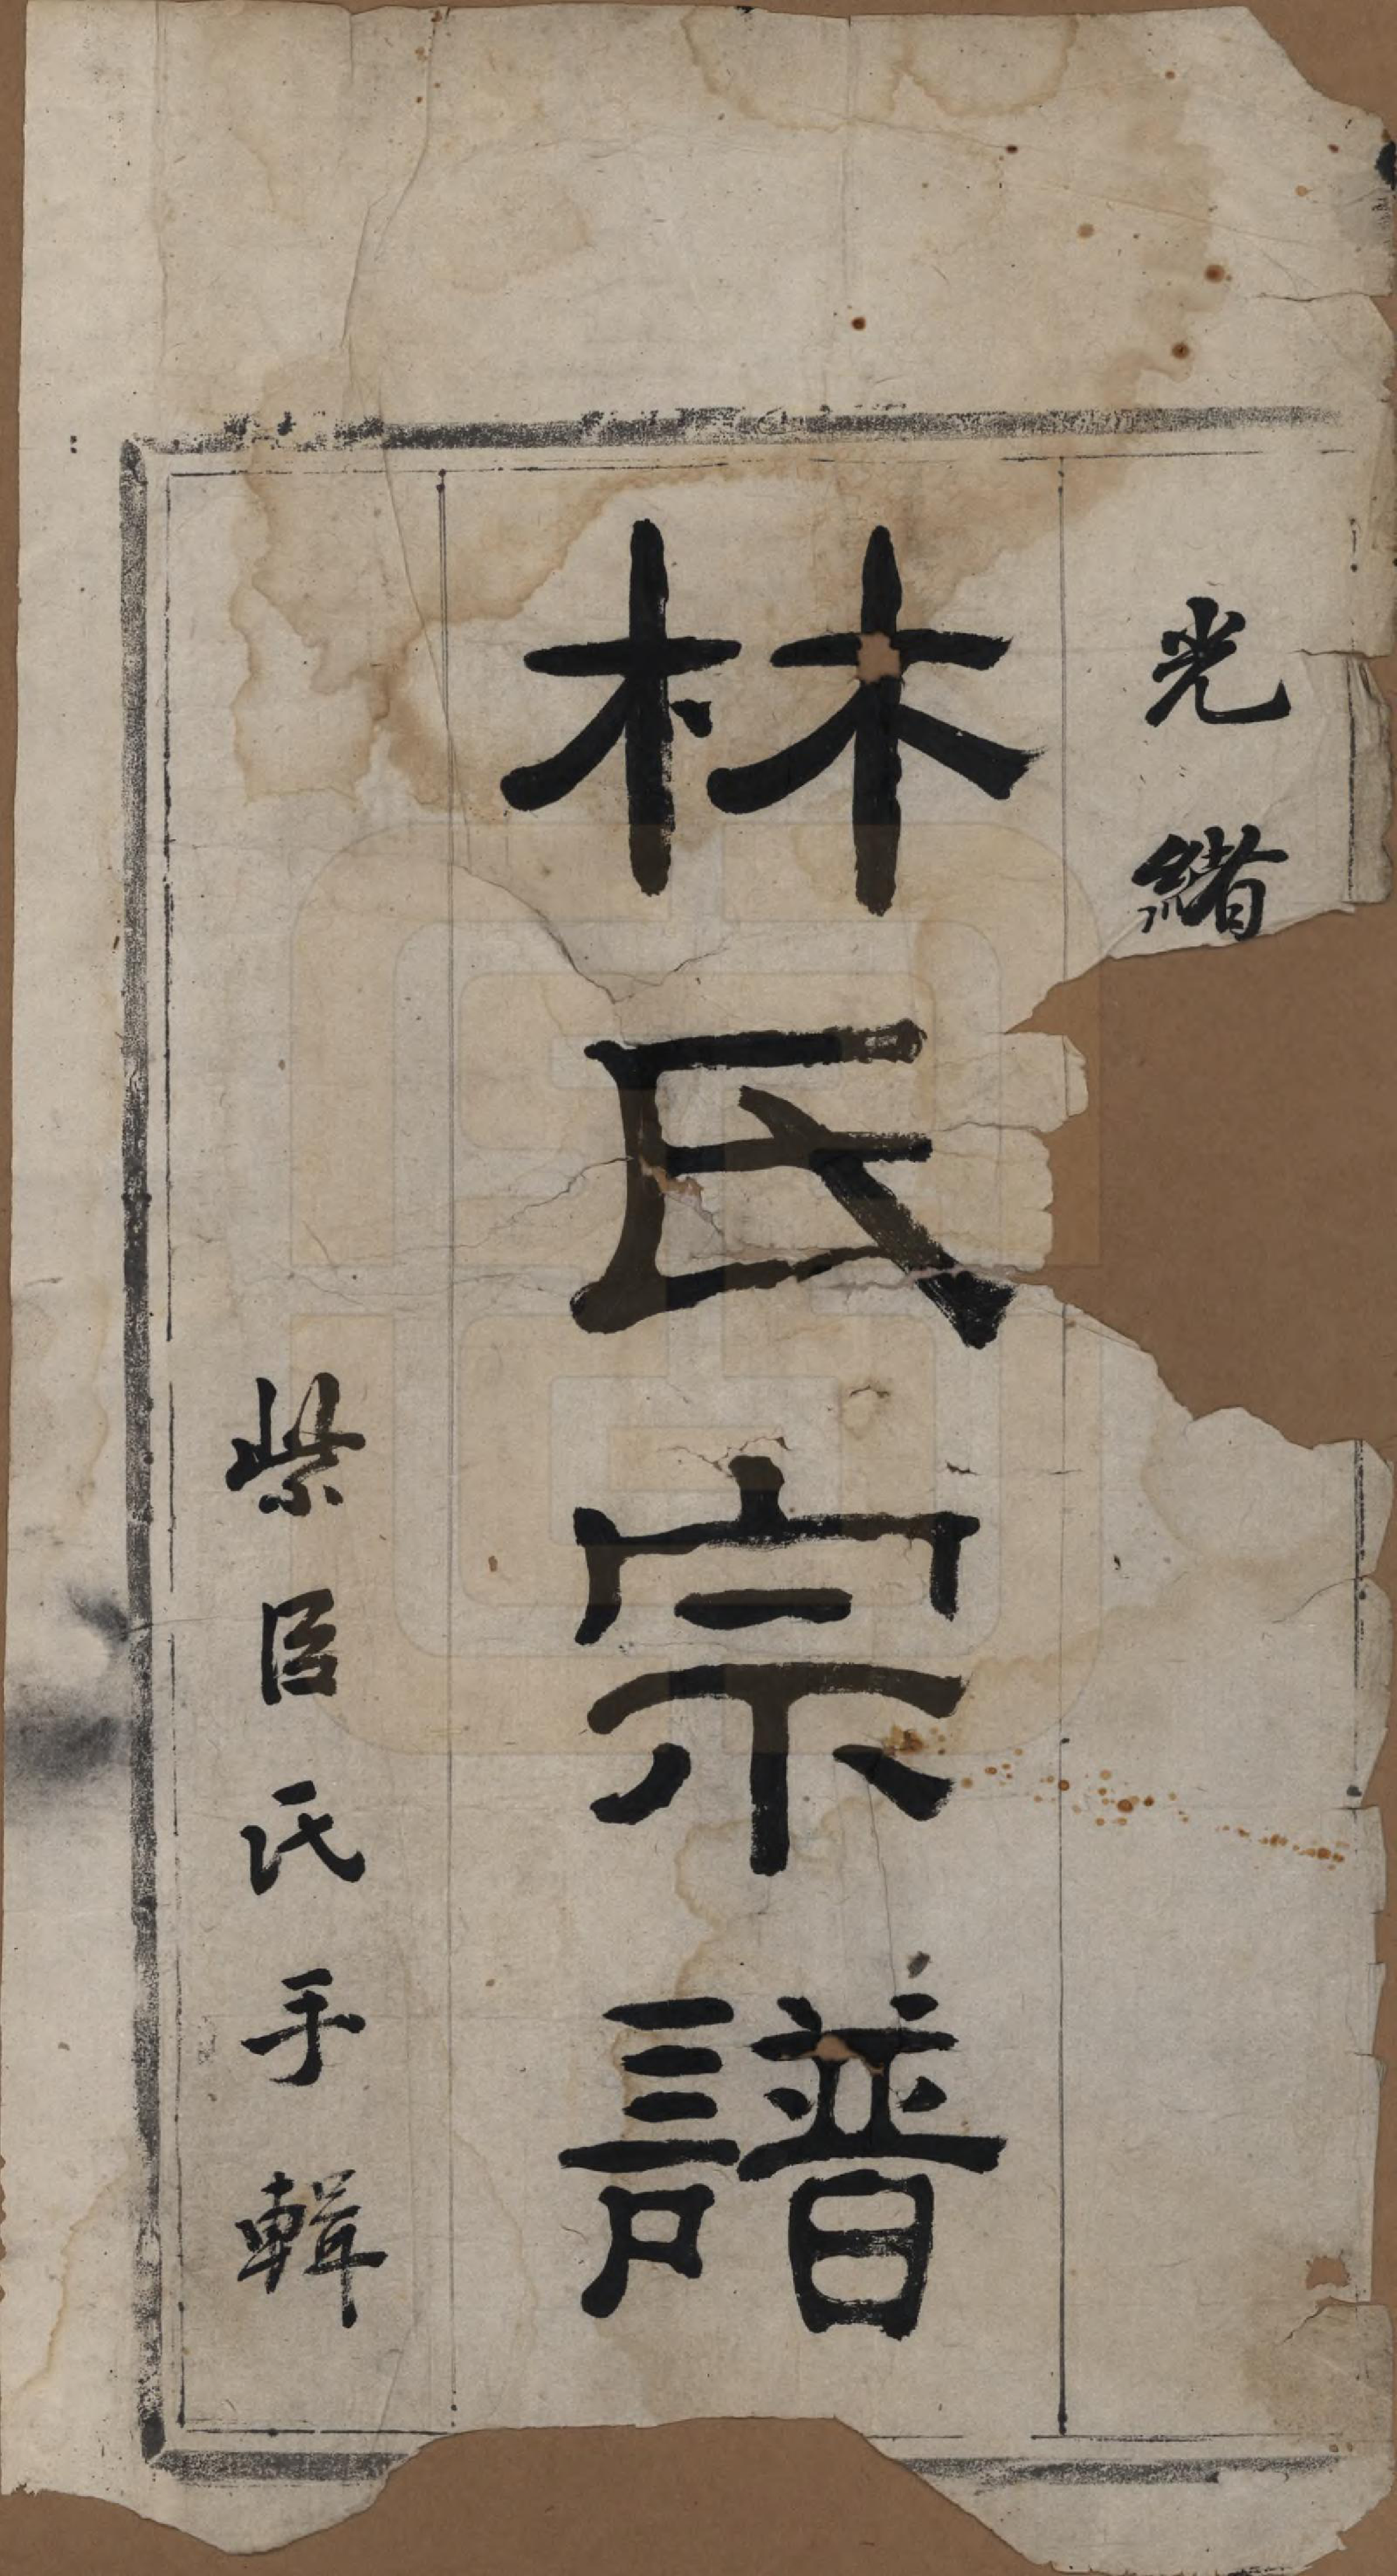 光緒
林氏宗譜
紫臣氏手輯